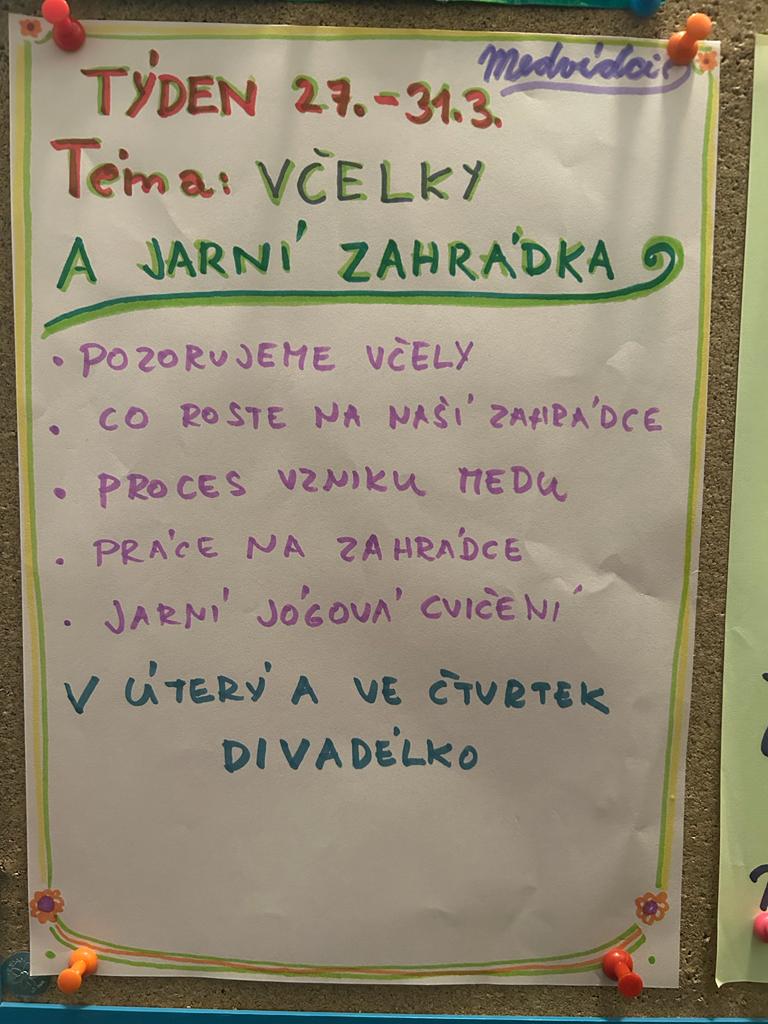 Medvídci
TÝDEN 27.-31.3.
Téma: VČELKY
A JARNÍ ZAHRÁDKA
• POZORUJEME VČELY
• CO ROSTE NA NAŠÍ ZAHRÁDCE
• PROCES VZNIKU MEDU
• PRÁCE NA ZAHRÁDCE
• JARNÍ JÓGOVÁ CVIČENÍ
V ÚTERÝ A VE ČTVRTEK
DIVADÉLKO